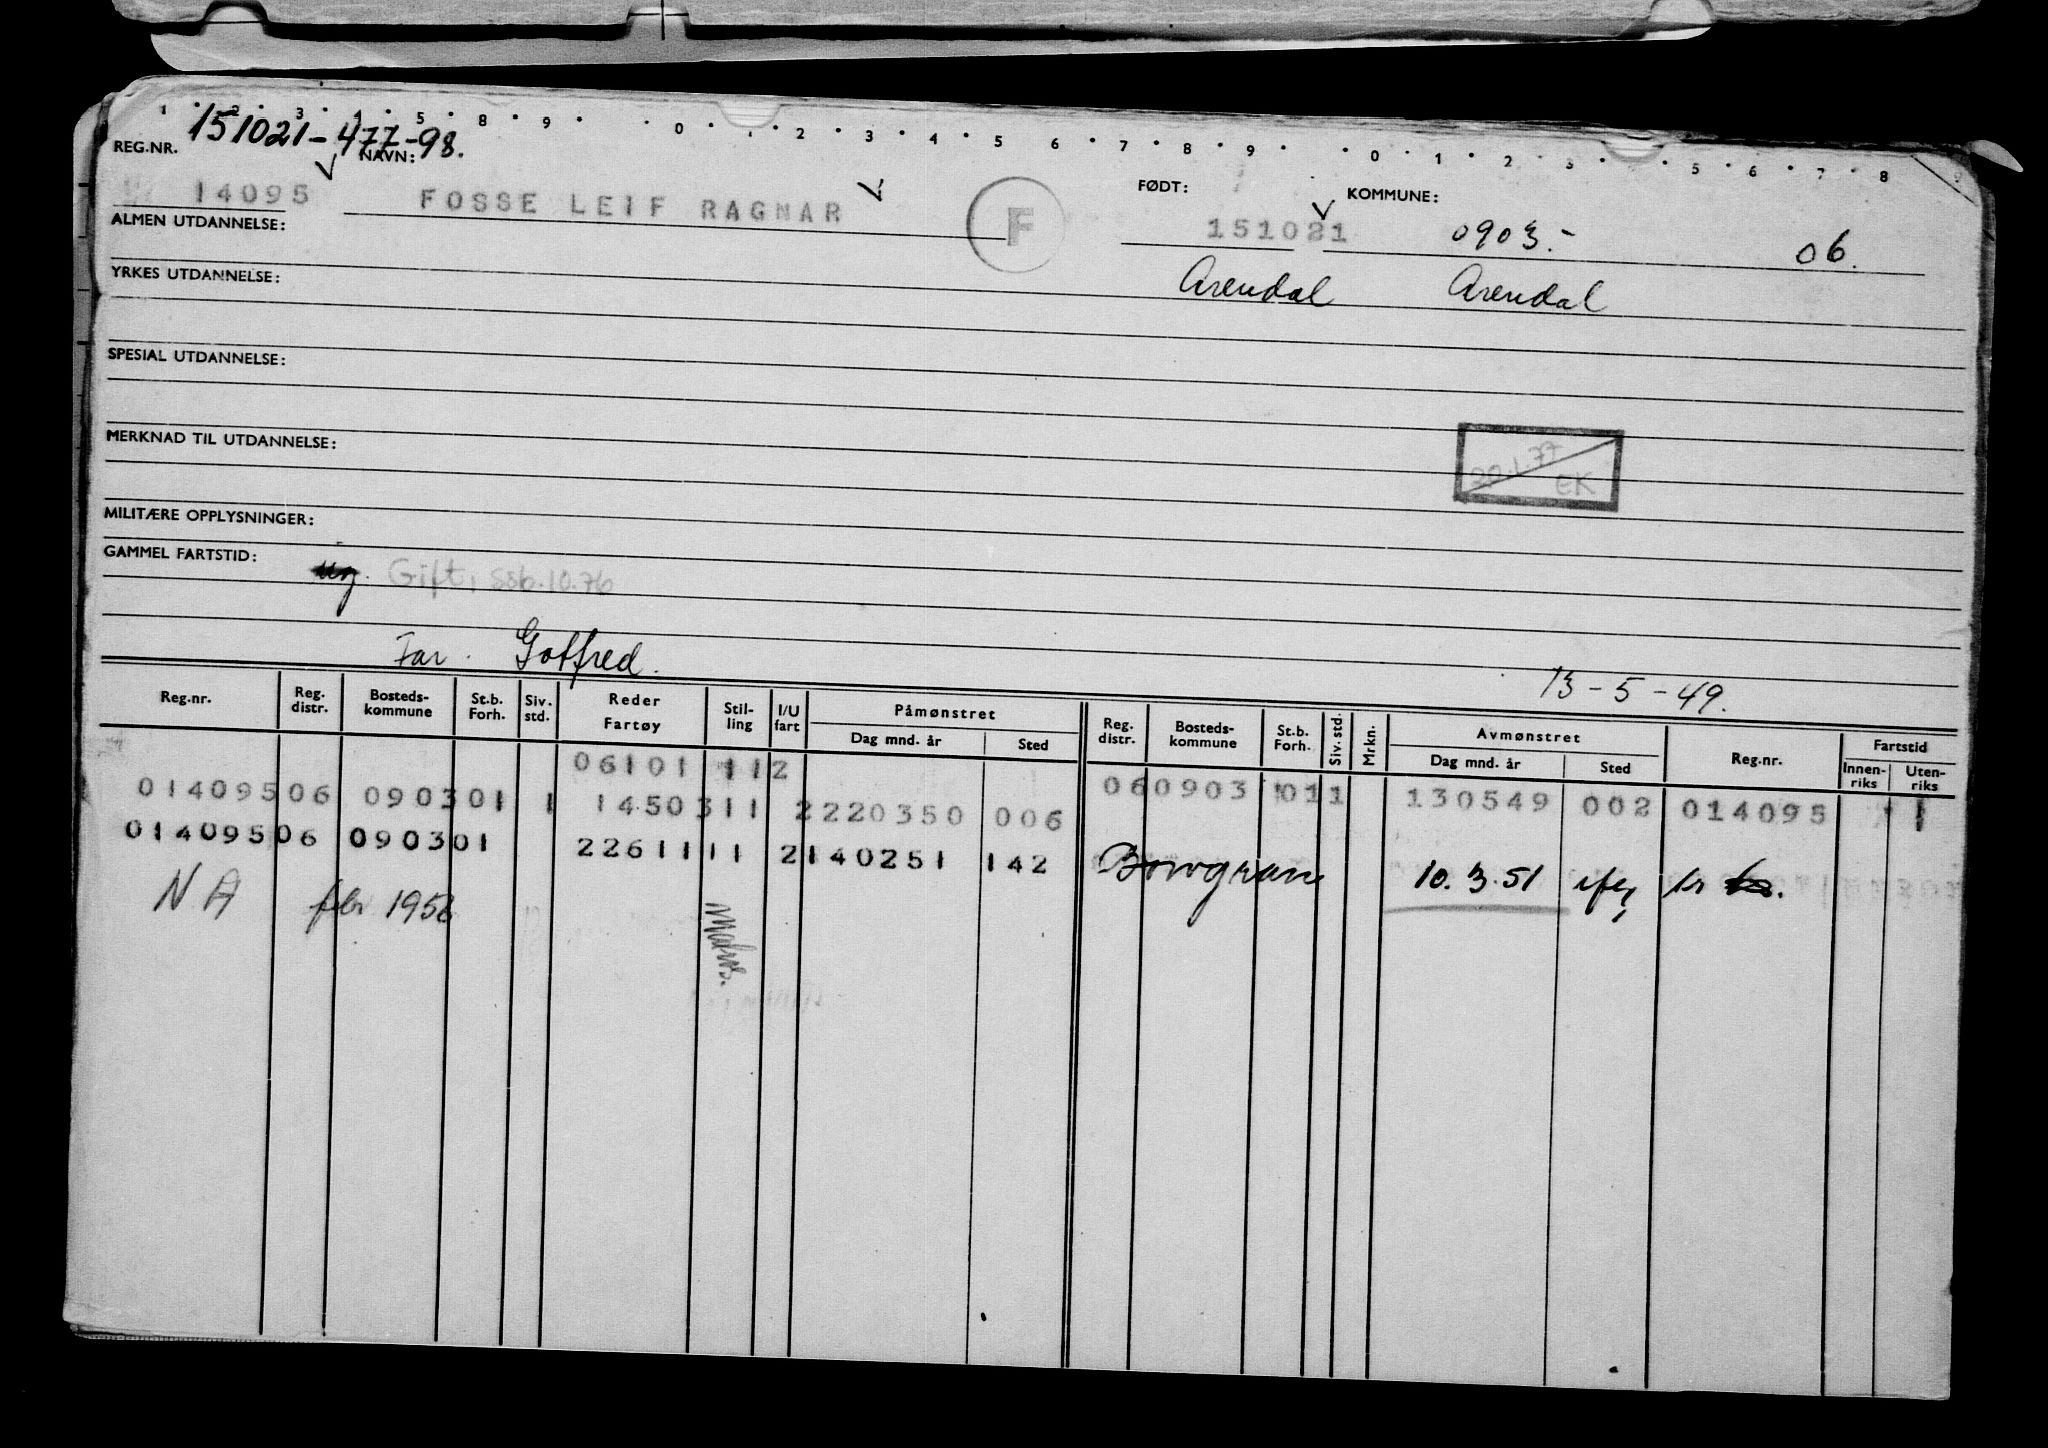 1 2 3 4 5 8 9 0 1 2 3 4 5 6 7 8 9 0 1 2 3 5 6 7 8
151021-477-98.
REG.NR. NAVN: FØDT: KOMMUNE:
14095 FOSSE LEIF RAGNAR F 151021 0903.- 06.
ALMEN UTDANNELSE:
Arendal Arendal
YRKES UTDANNELSE:
SPESIAL UTDANNELSE:
MERKNAD TIL UTDANNELSE:
20.1.77
EK
MILITÆRE OPPLYSNINGER:
GAMMEL FARTSTID:
ug. Gift, ssb.10.76
Far. Gotfred.
13-5-49.
Reg.nr. Reg. distr. Bosteds-kommune St.b. Forh. Siv. std. Reder Fartøy Stil-ling I/U fart Påmønstret Dag mnd. år Sted Reg. distr. Bosteds-kommune St.b. Forh. Siv. std. Mrkn. Avmønstret Dag mnd. år Sted Reg.nr. Fartstid Innen-riks Uten-riks
06101 112 060903 01 1 130549 002 014095 1
014095 06 0903 01 1 14503 11 2 220350 006
014095 06 0903 01 22611 11 2 140251 142 Bowgran 10.3.51
NA febr 1956